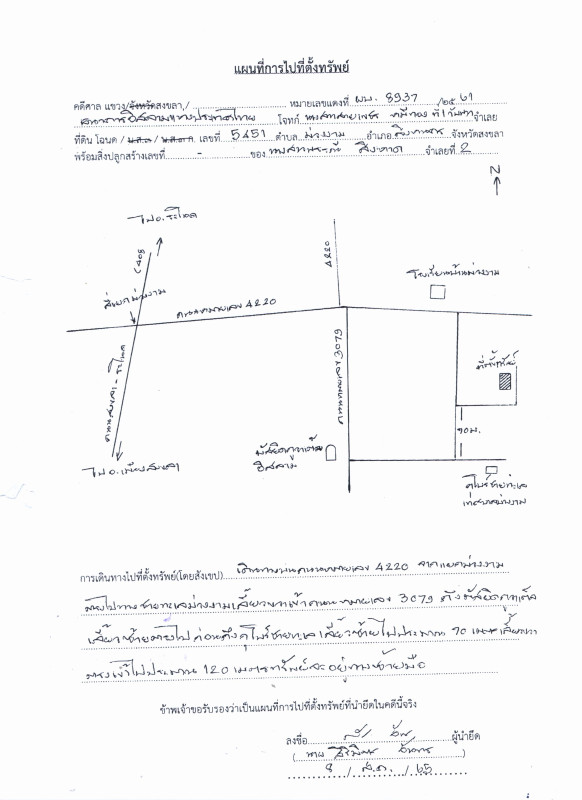 แผนที่การไปที่ตั้งทรัพย์
คดีศาล แขวง/จังหวัดสงขลา / หมายเลขแดงที่ ผบ. 8937 /๒๕ 61
ธนาคารอิสลามแห่งประเทศไทย โจทก์ ที่ 1 จำเลย
ที่ดิน โฉนด / น.ส.๓ / น.ส.๓ ก เลขที่ 5451 ตำบล ม่วงงาม อำเภอ สิงหนคร จังหวัดสงขลา
พร้อมสิ่งปลูกสร้างเลขที่ - ของ จำเลยที่ 2
N
ไป อ.ระโนด
408
4220
สี่แยกม่วงงาม
ถนนหมายเลข 4220
โรงเรียนบ้านม่วงงาม
ถนนสงขลา - ระโนด
ถนนหมายเลข 3079
ที่ตั้งทรัพย์
70 ม.
มัสยิด
อิสลาม
ไป อ.เมืองสงขลา
ชายทะเล
เทศบาลม่วงงาม
การเดินทางไปที่ตั้งทรัพย์(โดยสังเขป) เดินทางบนถนนหมายเลข 4220 จากแยกม่วงงาม
ตรงไปทางชายทะเลม่วงงามเลี้ยวขวาเข้าถนนหมายเลข 3079 ถึงมัสยิด
เลี้ยวซ้ายตรงไป ก่อนถึง ชายทะเล เลี้ยวซ้ายไปประมาณ 70 เมตร เลี้ยวขวา
ตรงเข้าไปประมาณ 120 เมตร ทรัพย์จะอยู่ทางซ้ายมือ
ข้าพเจ้าขอรับรองว่าเป็นแผนที่การไปที่ตั้งทรัพย์ที่นำยึดในคดีนี้จริง
ลงชื่อ ผู้นำยึด
( นาย )
8 / ส.ค. / 65